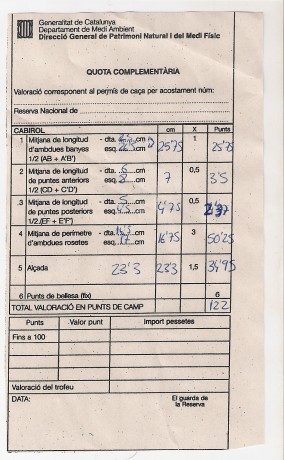 Generalitat de Catalunya
Departament de Medi Ambient
Direcció General de Patrimoni Natural i del Medi Físic
QUOTA COMPLEMENTÀRIA
Valoració corresponent al permís de caça per acostament núm:
Reserva Nacional de
CABIROL cm X Punts
1 Mitjana de longitud - dta. cm 1
d'ambdues banyes - esq. cm 25'75 25'75
1/2 (AB + A'B')
2 Mitjana de longitud - dta. 6 cm 0,5
de puntes anteriors - esq. 8 cm 7 3'5
1/2 (CD + C'D')
3 Mitjana de longitud - dta. 5 cm 0,5
de puntes posteriors - esq. cm 4'75 2'37
1/2 (EF + E'F')
4 Mitjana de perímetre - dta. cm 3
d'ambdues rosetes - esq. 17 cm 16'75 50'25
5 Alçada 23'3 23'3 1,5 34'95
6 Punts de bellesa (fix) 6
TOTAL VALORACIÓ EN PUNTS DE CAMP 122
Punts Valor punt Import pessetes
Fins a 100
Valoració del trofeu
DATA: El guarda de
la Reserva